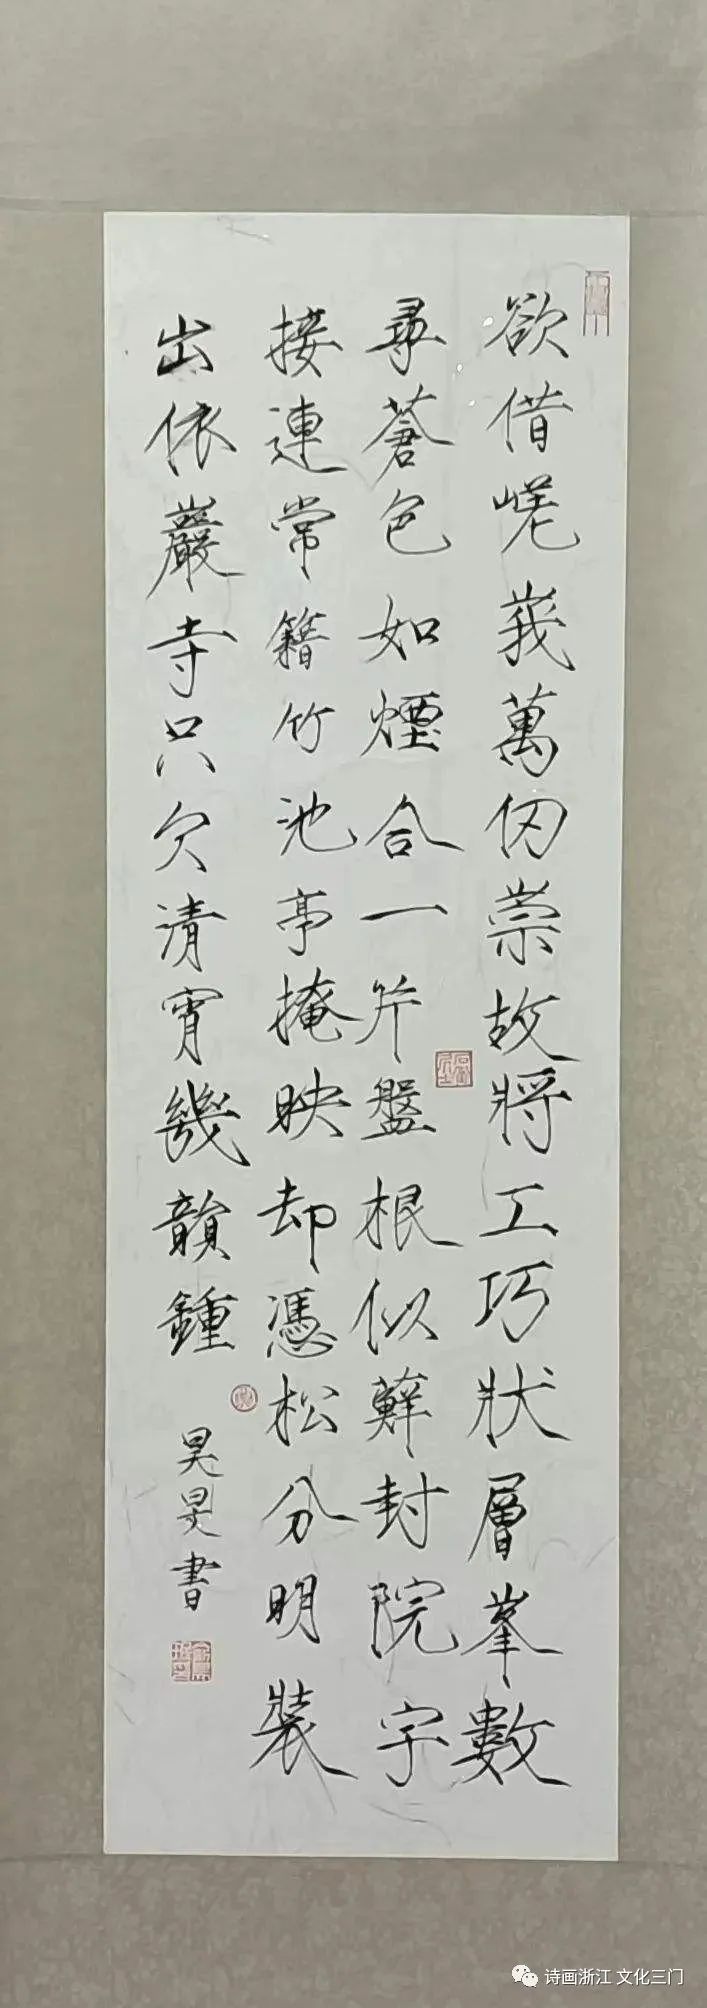 欲借嵯峩萬仞崇故將工巧狀層峯數
尋蒼色如煙合一片盤根似蘚封院宇
接連常籍竹池亭掩映却憑松分明裝
出依巖寺只欠清宵幾韻鍾
昊昊書
诗画浙江 文化三门